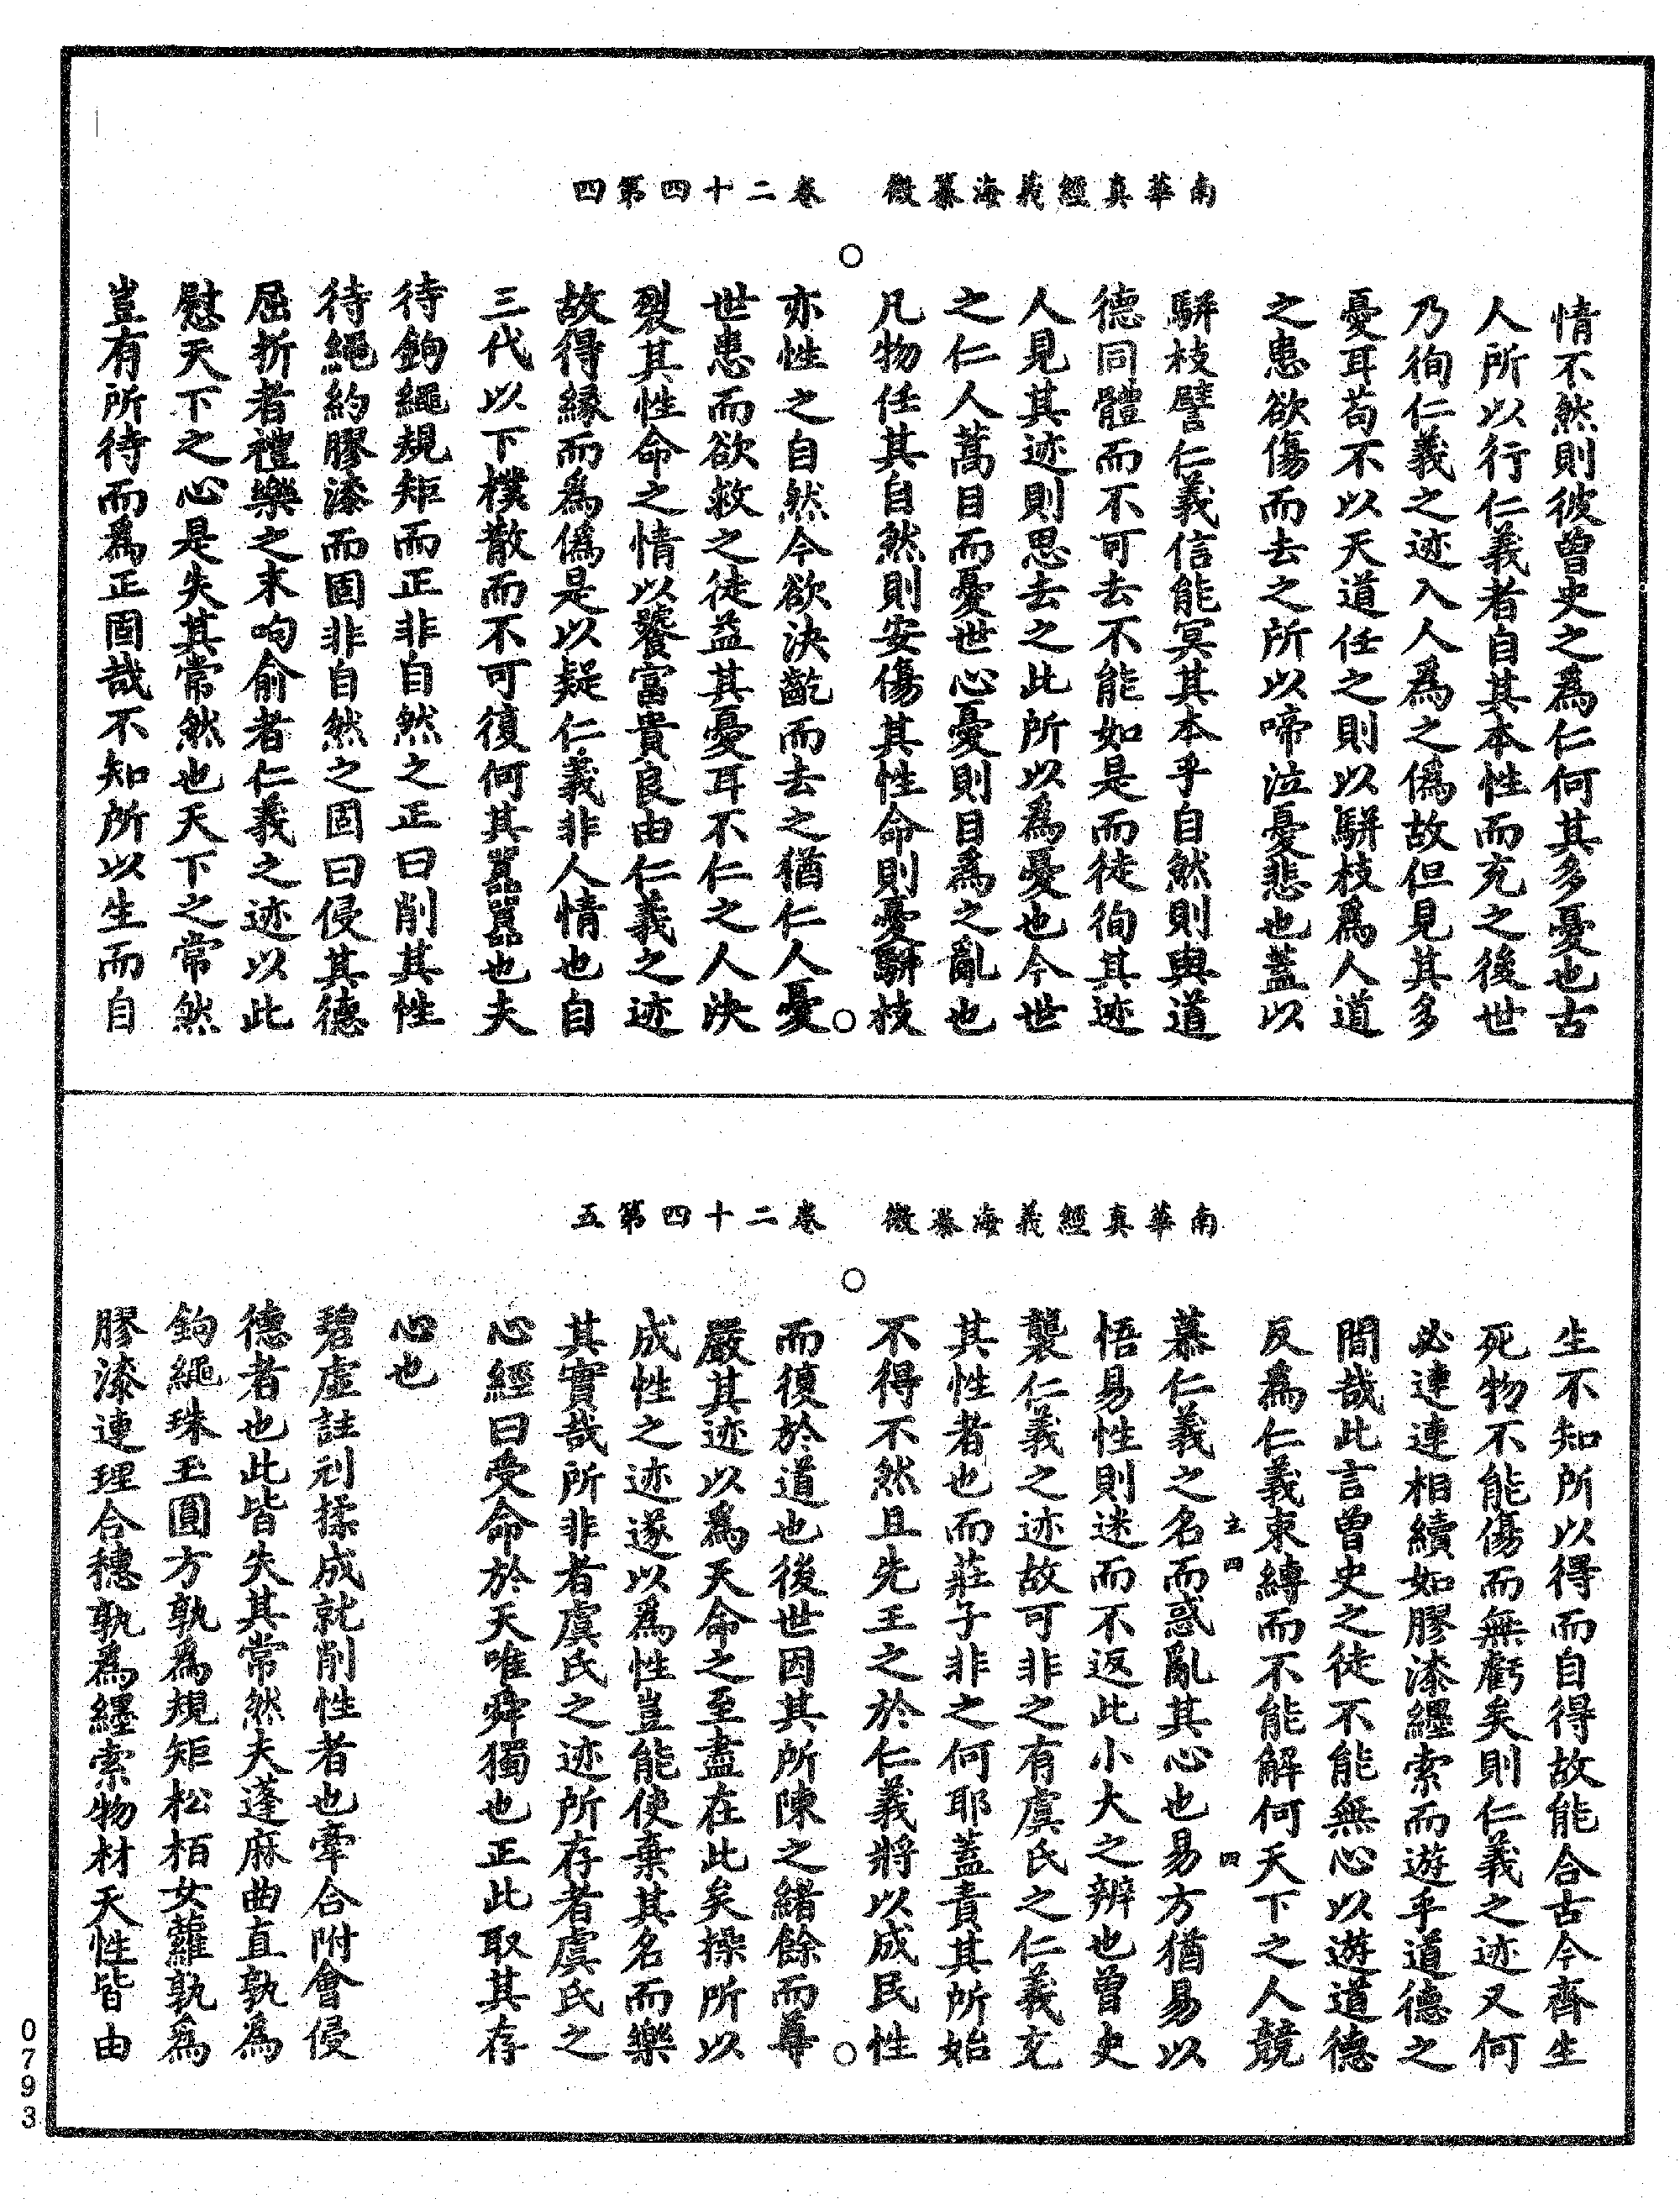 南華真經義海纂微　卷二十四第四
情不然則彼曾史之為仁何其多憂也古
人所以行仁義者自其本性而充之後世
乃徇仁義之迹入人為之偽故但見其多
憂耳苟不以天道任之則以駢枝為人道
之患欲傷而去之所以啼泣憂悲也蓋以
駢枝譬仁義信能冥其本乎自然則與道
德同體而不可去不能如是而徒徇其迹
人見其迹則思去之此所以為憂也今世
之仁人蒿目而憂世心憂則目為之亂也
凡物任其自然則安傷其性命則憂駢枝
亦性之自然今欲決齕而去之猶仁人憂
世患而欲救之徒益其憂耳不仁之人決
裂其性命之情以饕富貴良由仁義之迹
故得緣而為偽是以疑仁義非人情也自
三代以下樸散而不可復何其囂囂也夫
待鉤繩規矩而正非自然之正曰削其性
待繩約膠漆而固非自然之固曰侵其德
屈折者禮樂之末呴俞者仁義之迹以此
慰天下之心是失其常然也天下之常然
豈有所待而為正固哉不知所以生而自
南華真經義海纂微　卷二十四第五
生不知所以得而自得故能合古今齊生
死物不能傷而無虧矣則仁義之迹又何
必連連相續如膠漆纆索而遊乎道德之
間哉此言曾史之徒不能無心以遊道德
反為仁義束縛而不能解何天下之人競
四
慕仁義之名而惑亂其心也易方猶易以
悟易性則迷而不返此小大之辨也曾史
襲仁義之迹故可非之有虞氏之仁義充
其性者也而莊子非之何耶蓋責其所始
不得不然且先王之於仁義將以成民性
而復於道也後世因其所陳之緒餘而尊
嚴其迹以為天命之至盡在此矣操所以
成性之迹遂以為性豈能使棄其名而樂
其實哉所非者虞氏之迹所存者虞氏之
心經曰受命於天唯舜獨也正此取其存
心也
碧虛註刓揉成就削性者也牽合附會侵
德者也此皆失其常然夫蓬麻曲直孰為
鉤繩珠玉圓方孰為規矩松栢女蘿孰為
膠漆連理合穗孰為纆索物材天性皆由
0793